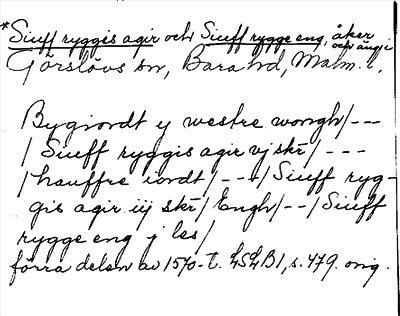 *Siuff ryggis agir och Siuff rygge eng, åker och äng i
Görslövs sn, Bara hd, Malm. l.
Bygiordt y westre wongh/---
/ Siuff ryggis agir vj skr/ ---
/hauffre iordt/---/Siuff ryg-
gis agir iij skr/ Engh/--/Siuff
rygge eng j les/
förra delen av 1570-t. LSLB1, s. 479. orig.